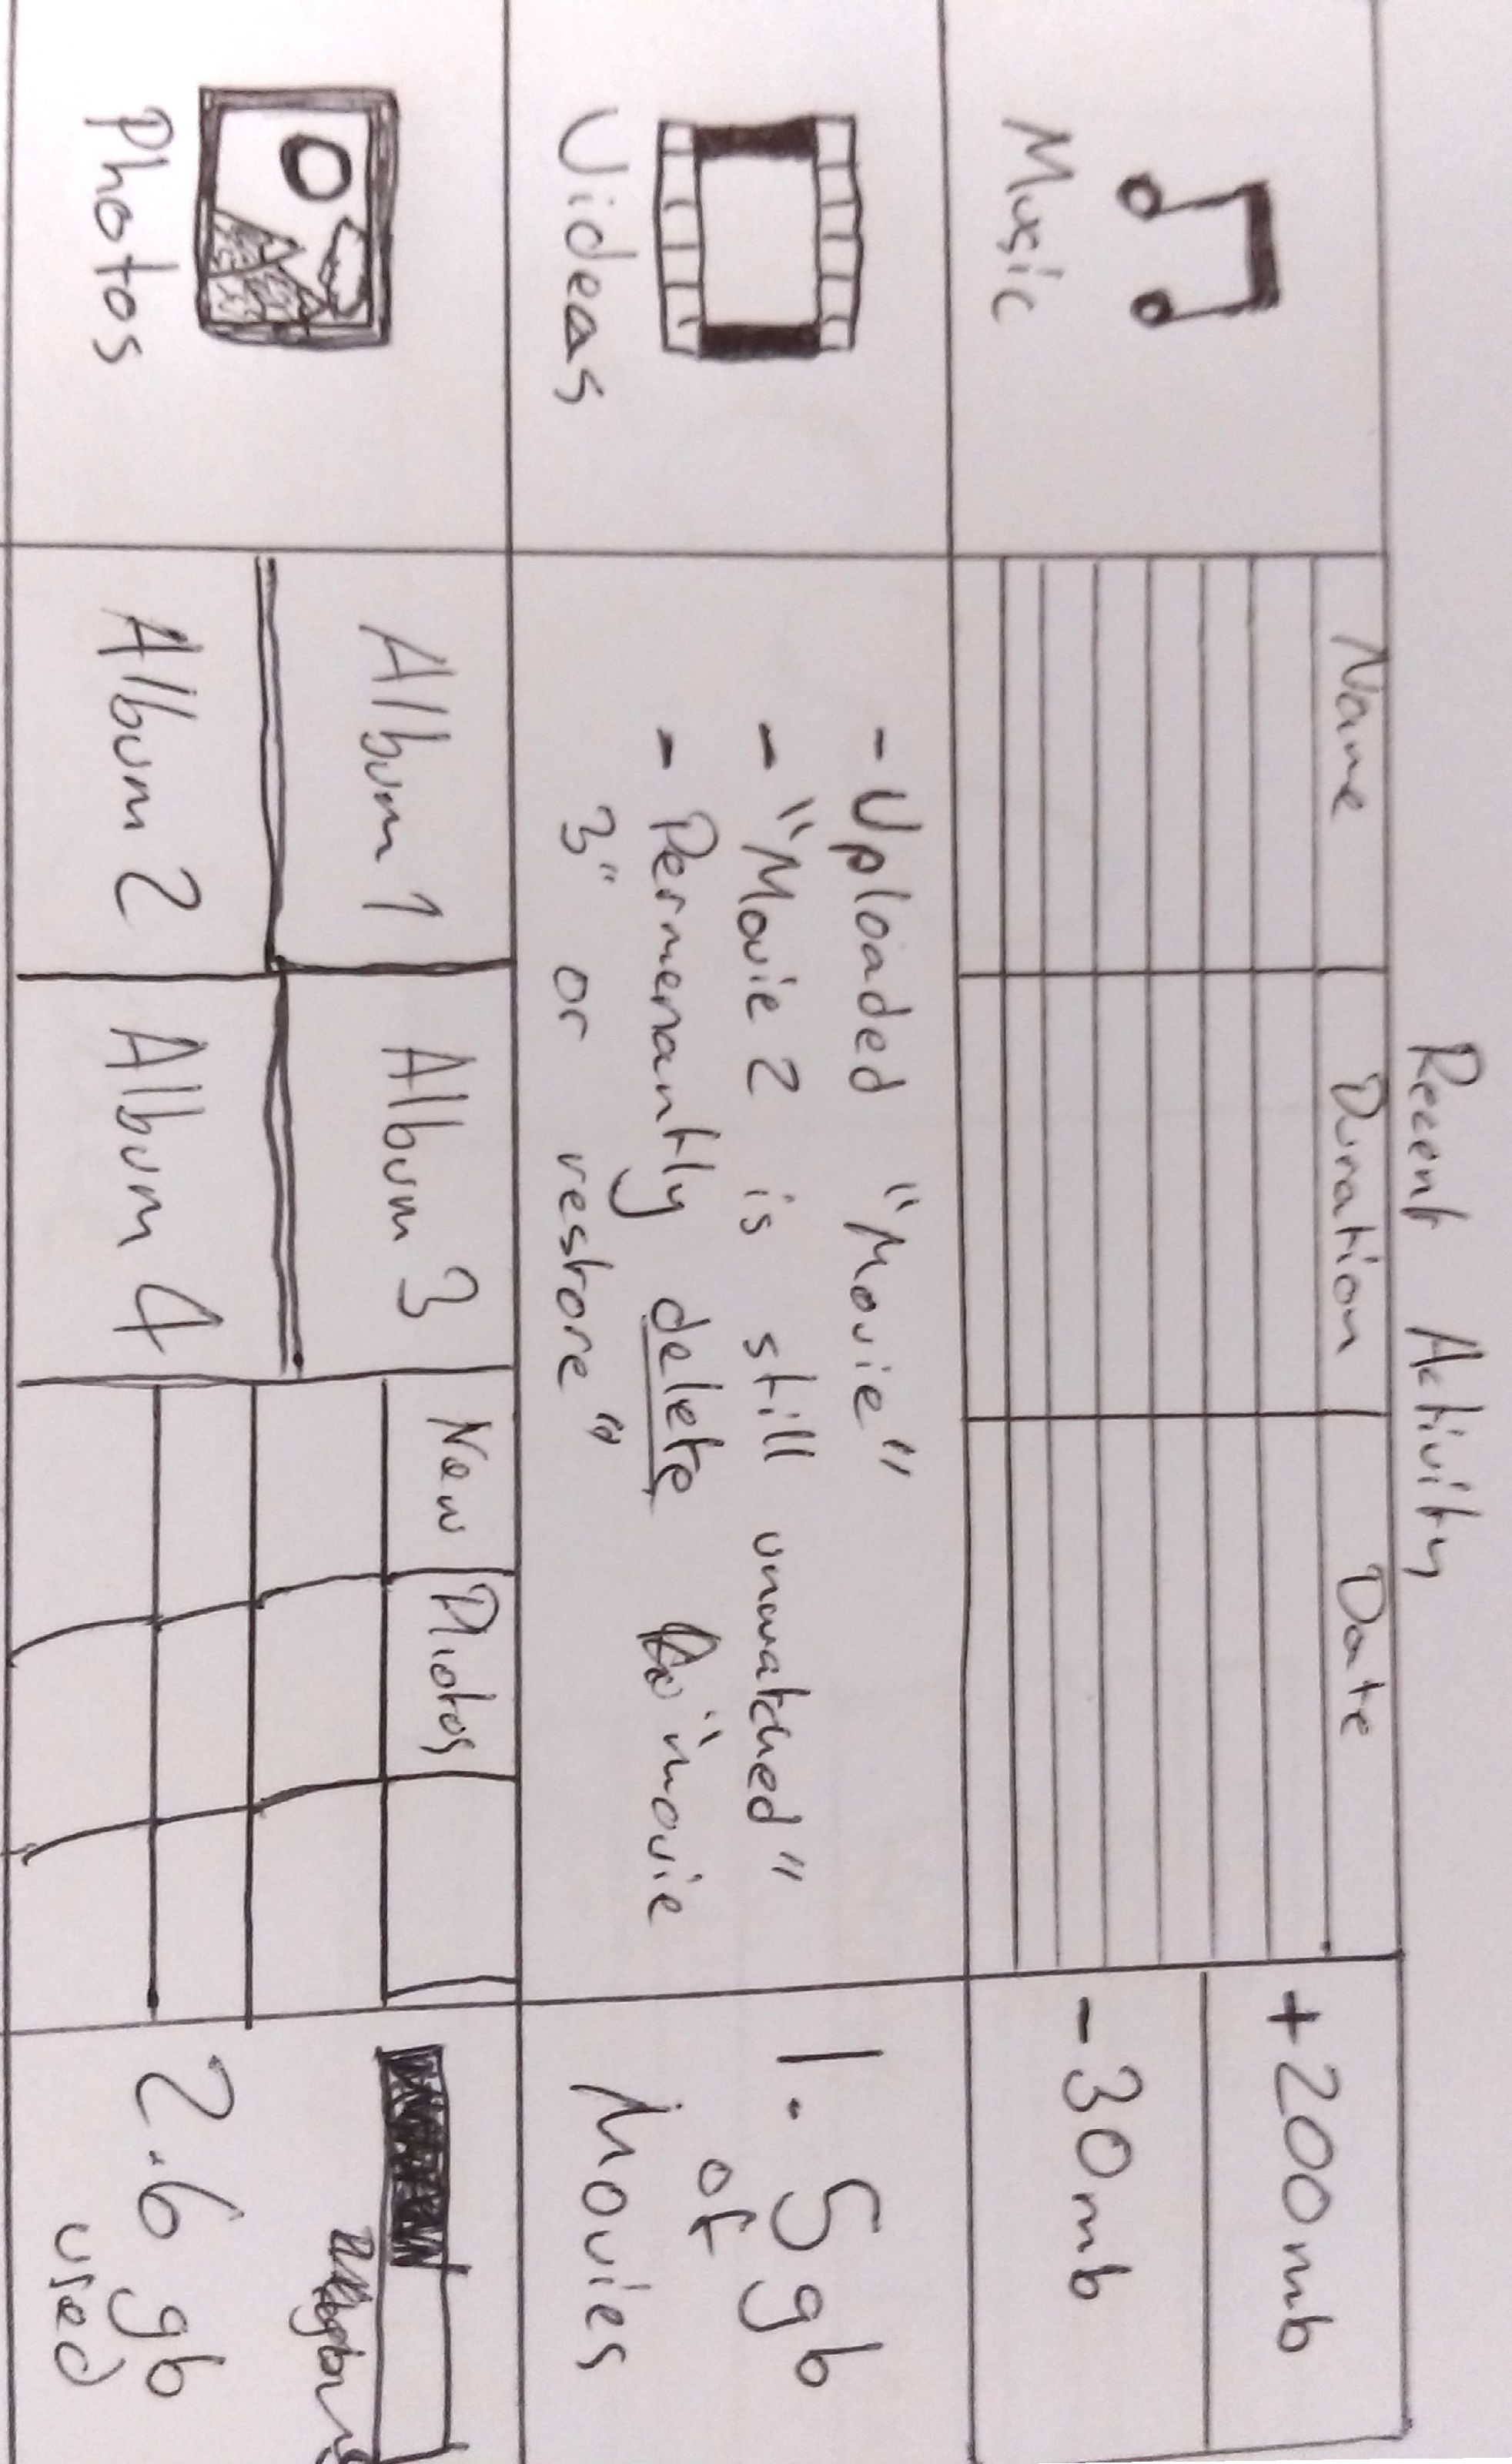 Recent Activity
Music
Name Duration Date
+200mb
-30mb
Videos
- Uploaded "Movie"
- "Movie 2 is still unwatched"
- Permenantly delete "movie
3" or restore"
1.5gb
of
Movies
Photos
Album 1
Album 3
Album 2
Album 4
New Photos
2.6 gb
used